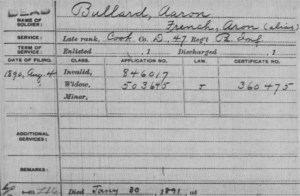 DEAD
NAME OF SOLDIER: Bullard, Aaron
French, Aron (alias)
SERVICE: Late rank, Cook Co. D, 47 Reg't Pa. Inf.
TERM OF SERVICE: Enlisted , 1 Discharged , 1
DATE OF FILING. CLASS. APPLICATION NO. LAW. CERTIFICATE NO.
1890, Aug. 4 Invalid, 846017
Widow, 503645 " 360475
Minor,
ADDITIONAL SERVICES:
REMARKS:
Died Jany 30, 1891, at